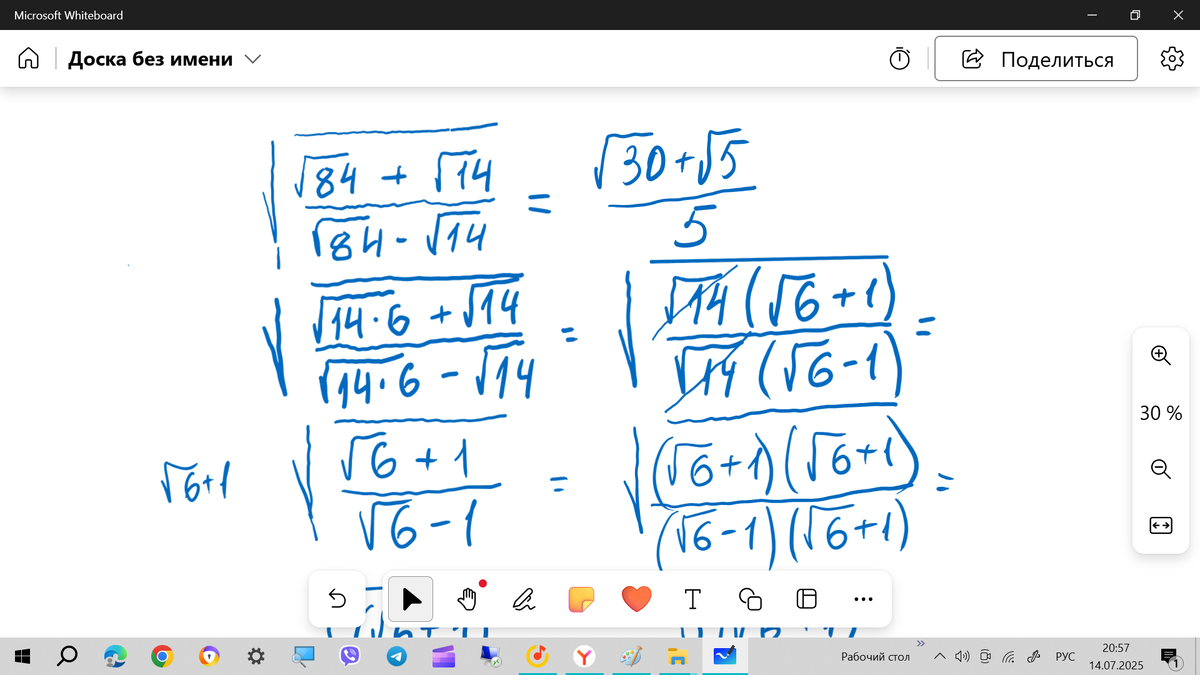 Microsoft Whiteboard
Доска без имени
Поделиться
√(√84 + √14 / √84 - √14) = √30+√5 / 5
√(√14·6 + √14 / √14·6 - √14) = √(√14 (√6+1) / √14 (√6-1)) =
√6+1 √(√6+1 / √6-1) = √((√6+1)(√6+1) / (√6-1)(√6+1)) =
30 %
T
Рабочий стол
РУС
20:57
14.07.2025
1